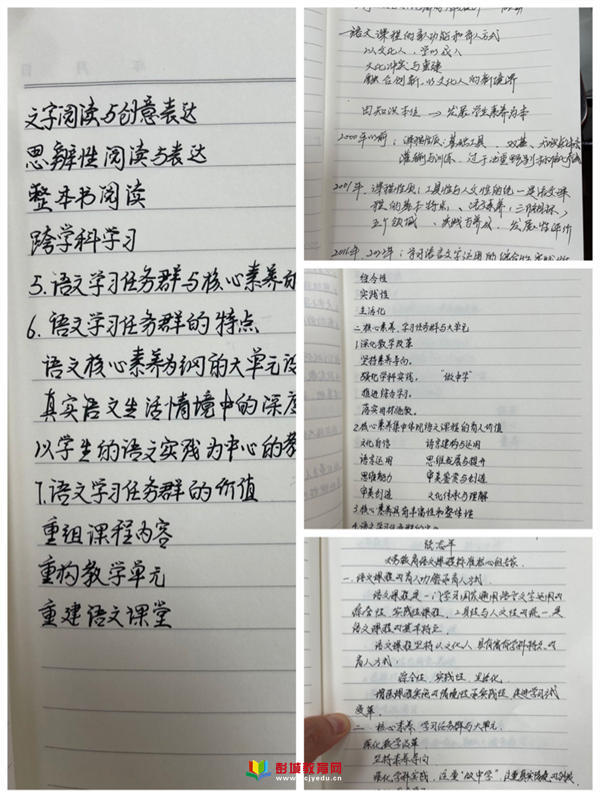 文字阅读与创意表达
思辨性阅读与表达
整本书阅读
跨学科学习
5.语文学习任务群与核心素养的
6.语文学习任务群的特点
语文核心素养为纲的大单元设
真实语文生活情境中的深度
以学生的语文实践为中心的教
7.语文学习任务群的价值
重组课程内容
重构教学单元
重建语文课堂
一语文课程的育人功能和育人方式
以文化人,学以成人
文化冲突与重建
融合创新,以文化人的新境界
由知识本位 → 发展学生素养为本
2000年以前:课程性质:基础工具、双基、
准确与训练、过于
2001年.课程性质:工具性与人文性的统一是语文课
程的基本特点、语文素养,三维目标,
五个领域、实践与养成,发展性评价
2016年、2021年:学习语言文字运用的综合性实践性
综合性
实践性
生活化
二.核心素养、学习任务群与大单元
1.深化教学改革
坚持素养导向。
强化学科实践。“做中学”
推进综合学习。
落实因材施教。
2.核心素养集中体现语文课程的育人价值
文化自信 语言建构与运用
语言运用 思维发展与提升
思维能力 审美鉴赏与创造
审美创造 文化传承与理解
3.核心素养具有丰富性和整体性
义务教育语文课程标准核心组专家.
一.语文课程的育人功能和育人方式.
语文课程是一门学习国家通用语言文字运用的
综合性、实践性课程.工具性与人文性的统一是
语文课程的基本特点.
语文课程坚持以文化人,具有富有学科特点的
育人方式:
综合性、实践性、生活化.
增强课程实施的情境性和实践性,促进学习方式
变革.
二.核心素养、学习任务群与大单元.
深化教学改革
坚持素养导向
强化学科实践,注重“做中学”,注重真实情境
彭城教育网
www.cjyedu.cn